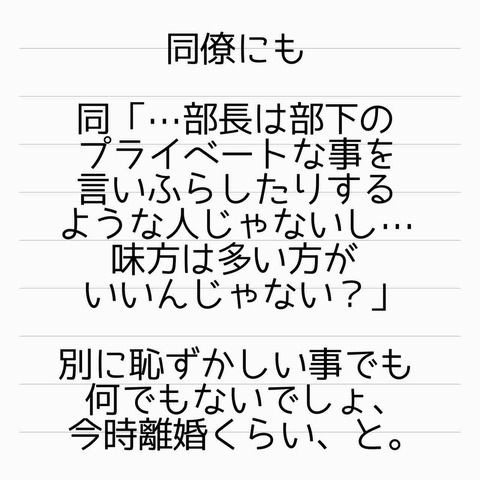 同僚にも
同「…部長は部下の
プライベートな事を
言いふらしたりする
ような人じゃないし…
味方は多い方が
いいんじゃない？」
別に恥ずかしい事でも
何でもないでしょ、
今時離婚くらい、と。